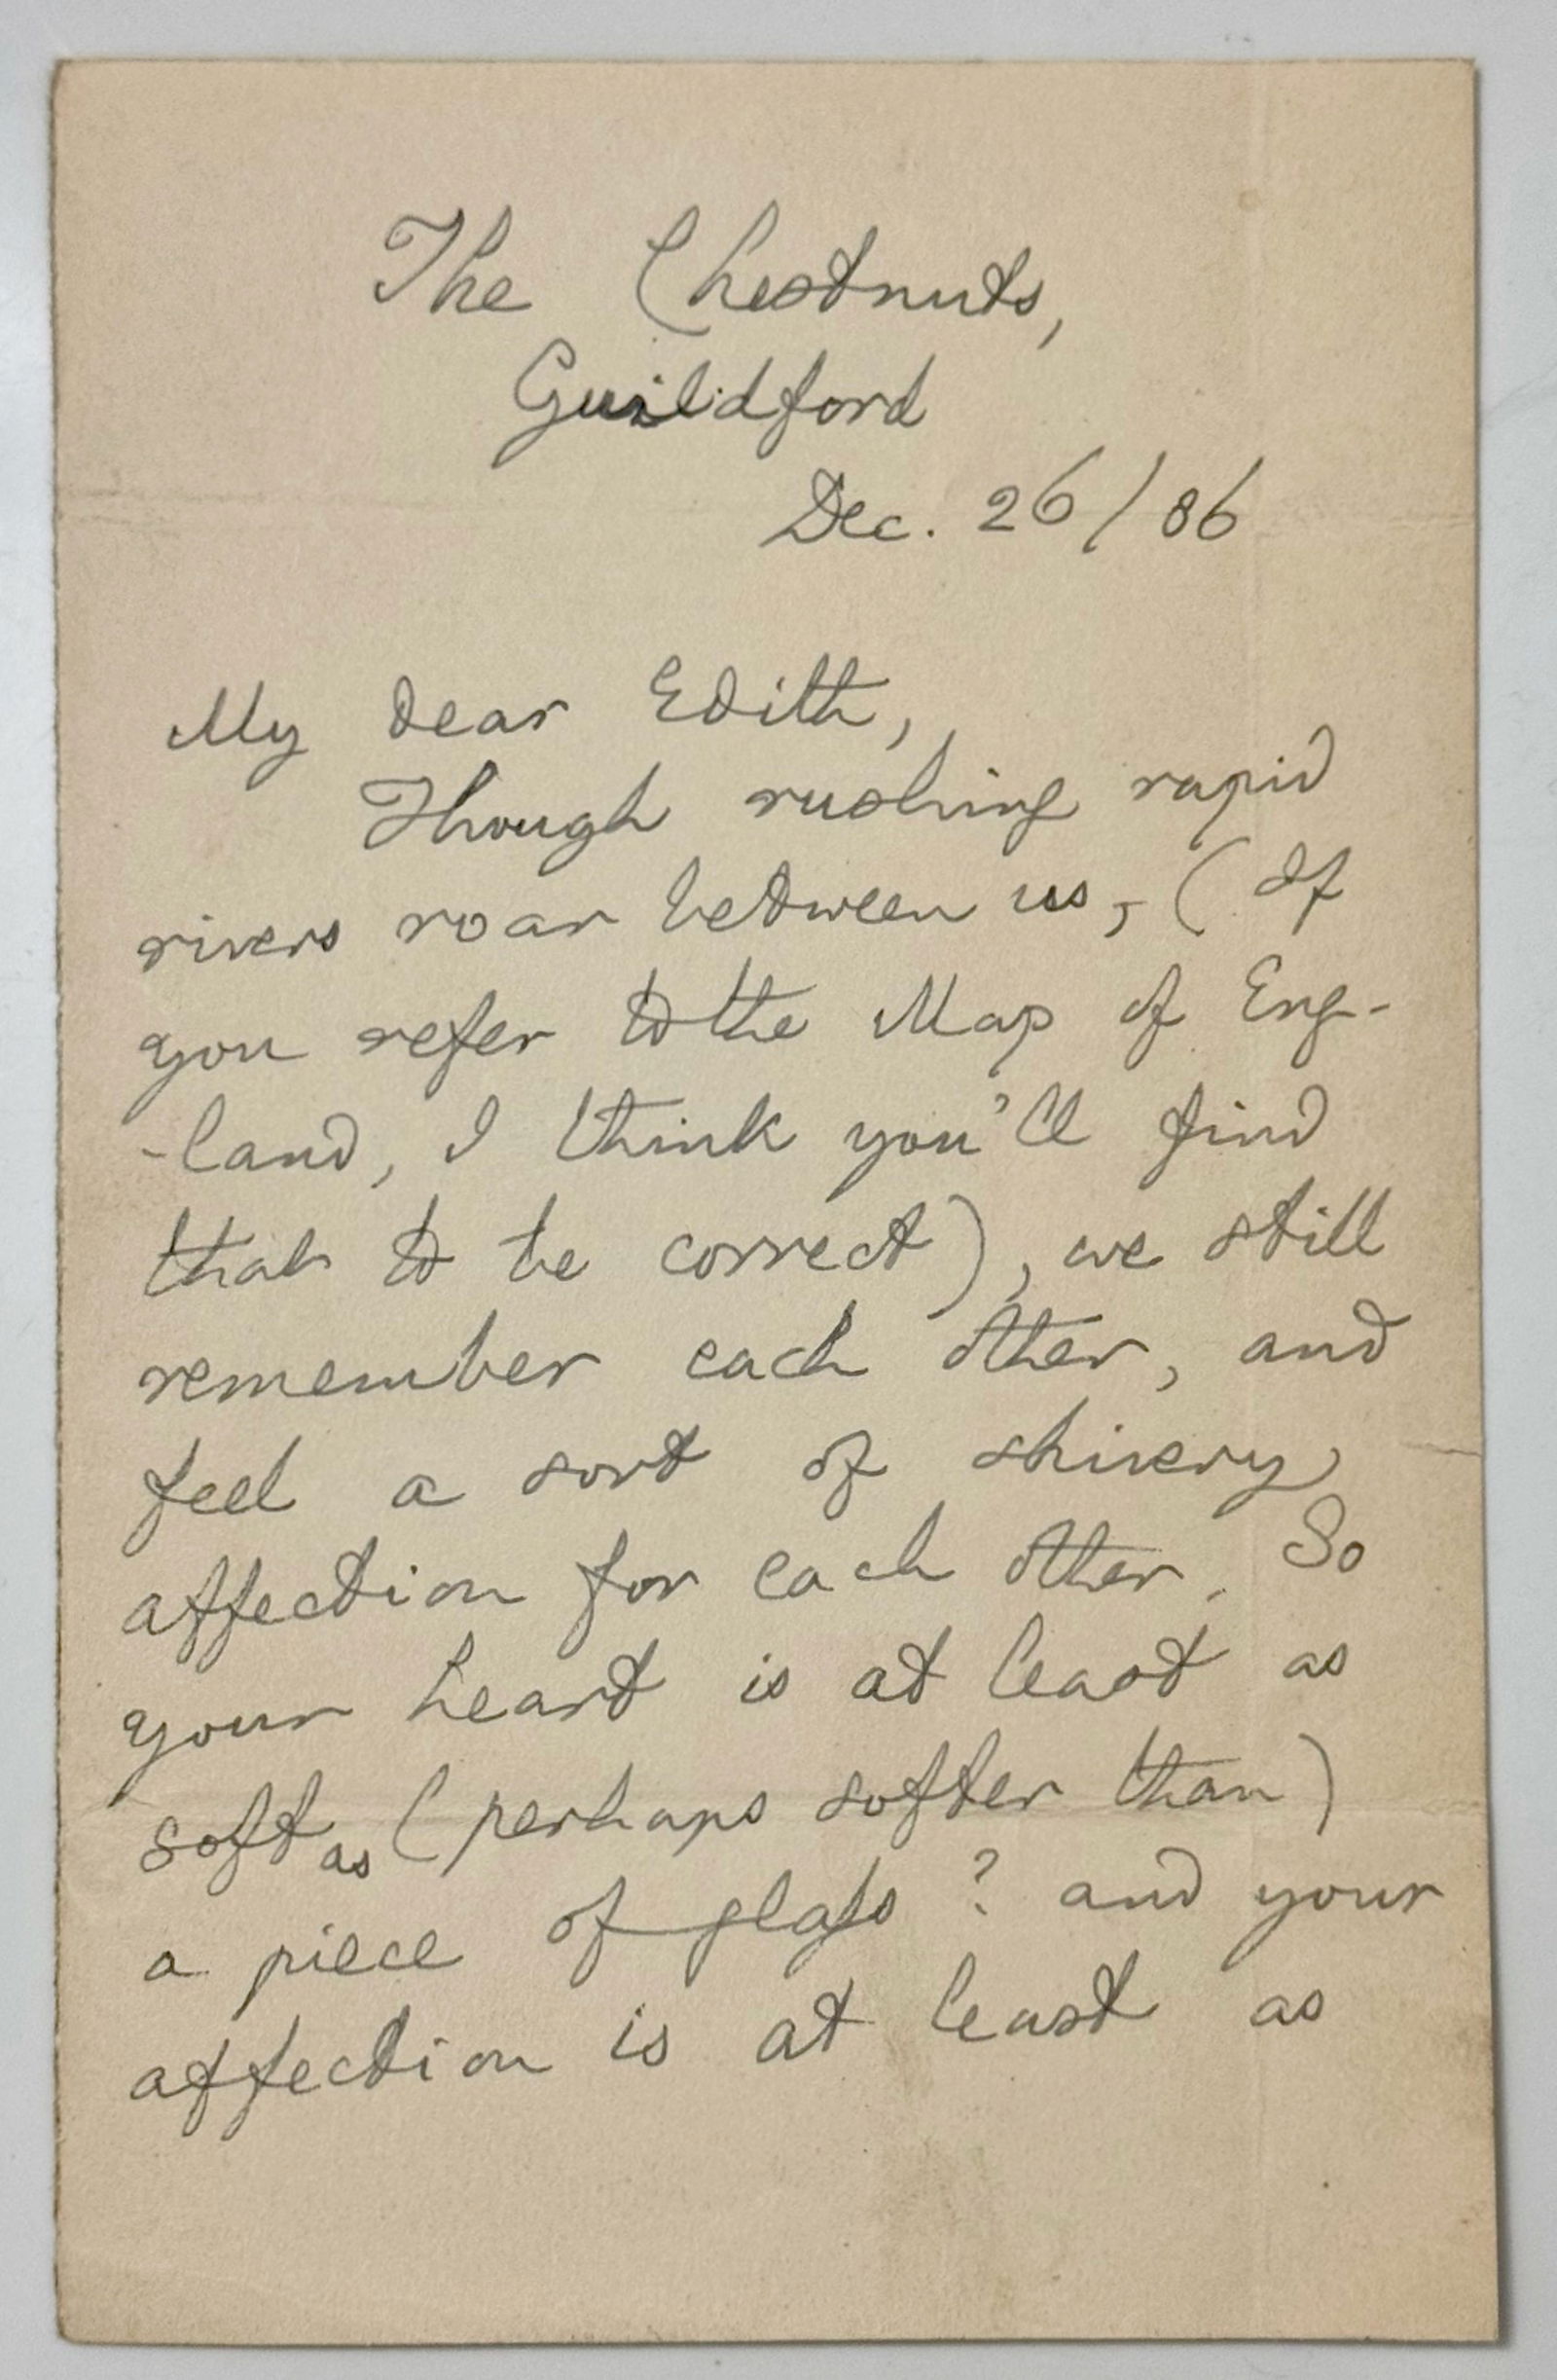 The Chestnuts,
Guildford
Dec. 26/86
My dear Edith,
Though rushing rapid
rivers roar between us, (if
you refer to the Map of Eng-
-land, I think you'll find
that to be correct), we still
remember each other, and
feel a sort of shivery
affection for each other. So
your heart is at least as
soft as (perhaps softer than)
a piece of glass? and your
affection is at least as